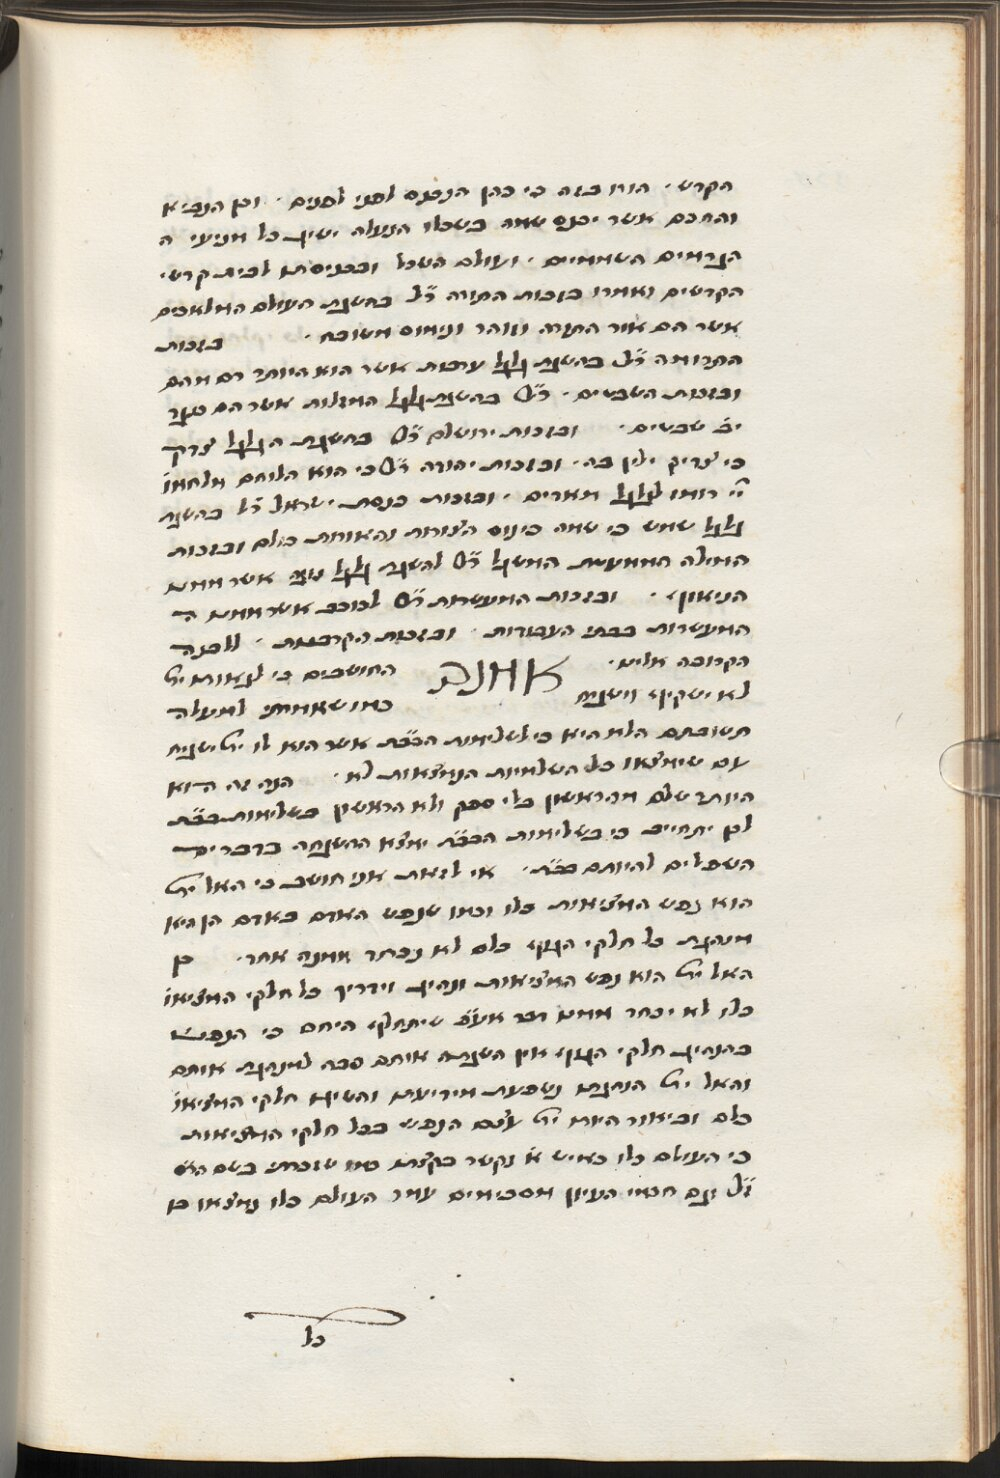 הקדש · הורו בזה כי כהן הנכנס לפני לפנים · וכן הנביא
והחכם אשר יכנס שמה בשכלו הנעלה ישיג כל מניעי ה
הגרמים השמימיים · ועולם השכל ובכניסתו לבית קדשי
הקדשים ואמרו בזכות התורה ר״ל בהשגת העולם המלאכים
אשר הם אור התורה וזוהר ונימוס משובח · בזכות
התרומה ר״ל בהשגת גלגל ערבות אשר הוא היותר רם מהם
ובזכות השבטים · ר״ל בהשגת גלגל המזלות אשר הם כנגד
יב שבטים · ובזכות ירושלם ר״ל בהשגת הגלגל צדק
כי צדיק ילין בה · ובזכות יהודה ר״ל כי הוא הלוחם מלחמו׳
יי׳ רומז לגלגל מאדים · ובזכות כנסת ישראל ר״ל בהשגת
גלגל שמש כי שמה כינוס הצורות והאורות כולם ובזכות
המילה הממעטת המשגל ר״ל להשגת גלגל נוגה אשר ממנו
הניאוף · ובזכות המעשרות ר״ל לכוכב אשר ממנו ה
המעשרות בבתי העבודות · ובזכות הקרבנות · ללבנה
הקרובה אלינו · אמנם החושבים כי לגאות יי׳
לא ישקיף וישגיח כמו שאמרתי למעלה
תשובתם הלא היא כי לשלימות הב״ת אשר הוא לו ית׳ ישגיח
עם שימצאו כל השלמיות הנמצאות לא · הנה זה הוא
היותר שלם מהראשון בלי ספק ולא הראשון בשלימות בב״ת
לכן יתחייב כי בשלימות הבב״ת ימצא ההשגחה בדברים
השפלים להיותם בב״ת · אי לזאת אני חושב כי האל ית׳
הוא נפש המציאות כלו וכמו שנפש האדם באדם הן היא
מנהגת כל חלקי הגוף כלם לא נכחד ממנה אחד · כן
האל ית׳ הוא נפש המציאות ונהיג וידריך כל חלקי המציאו׳
כלו לא יכחד ממנו דבר אע״פ שיתחלף היחס כי הנפש
בהנהיג חלקי הגוף אין השגחת אותם סבה להנהגת אותם
והאל ית׳ הנהגתו נשפעת מידיעתו והשיגו חלקי המציאו׳
כלם וביאור היות ית׳ עצם הנפש בכל חלקי המציאות
כי העולם כלו כאיש א׳ נקשר בקצתו כמו שזכרתי בשם הר״ם
ז״ל וגם חכמי העיון מסכימים עמו העולם כלו נמצאו בו
כל